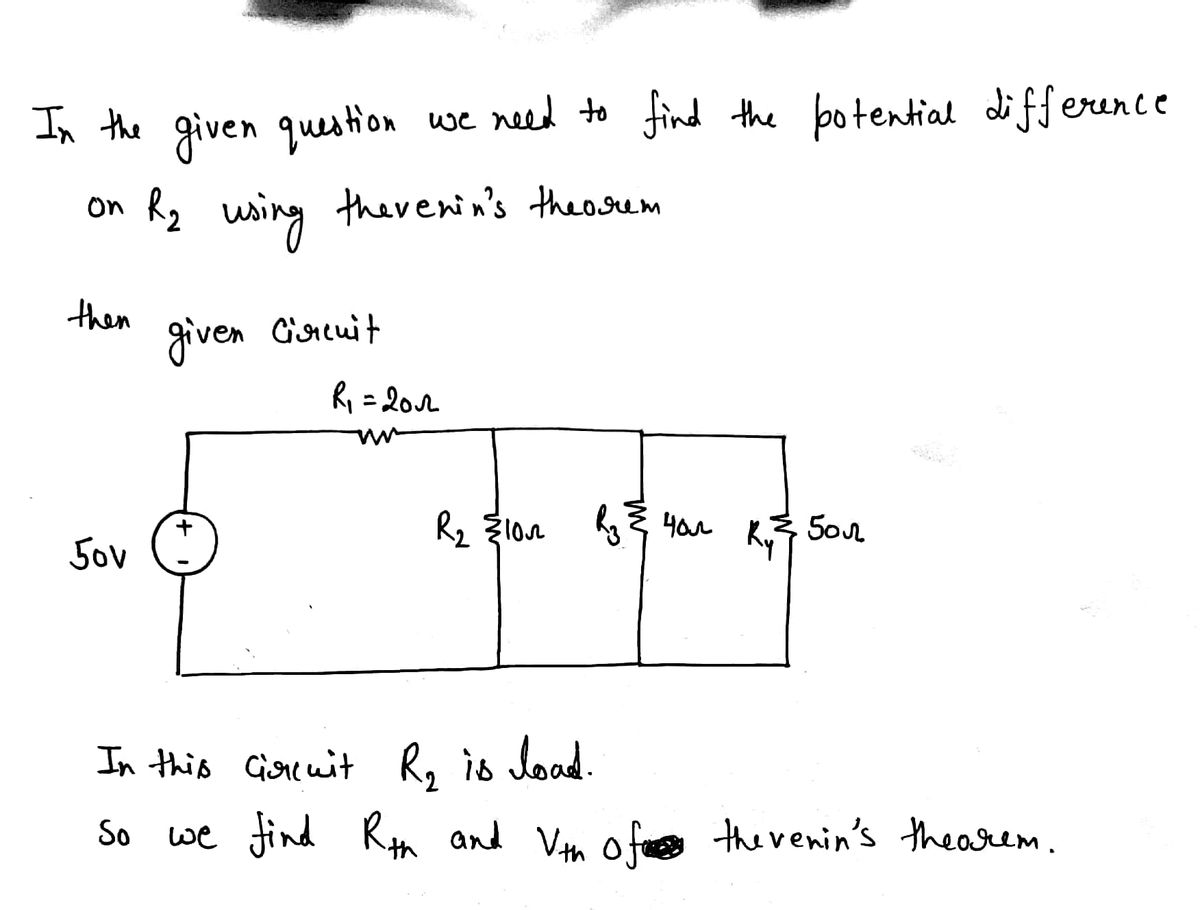 In the given question we need to find the potential difference
on R₂ using thevenin's theorem
then given Circuit
R₁ = 20Ω
50V
+
-
R₂ 10Ω
R₃ 40Ω
Ry 50Ω
In this Circuit R₂ is load.
So we find Rth and Vth of thevenin's theorem.